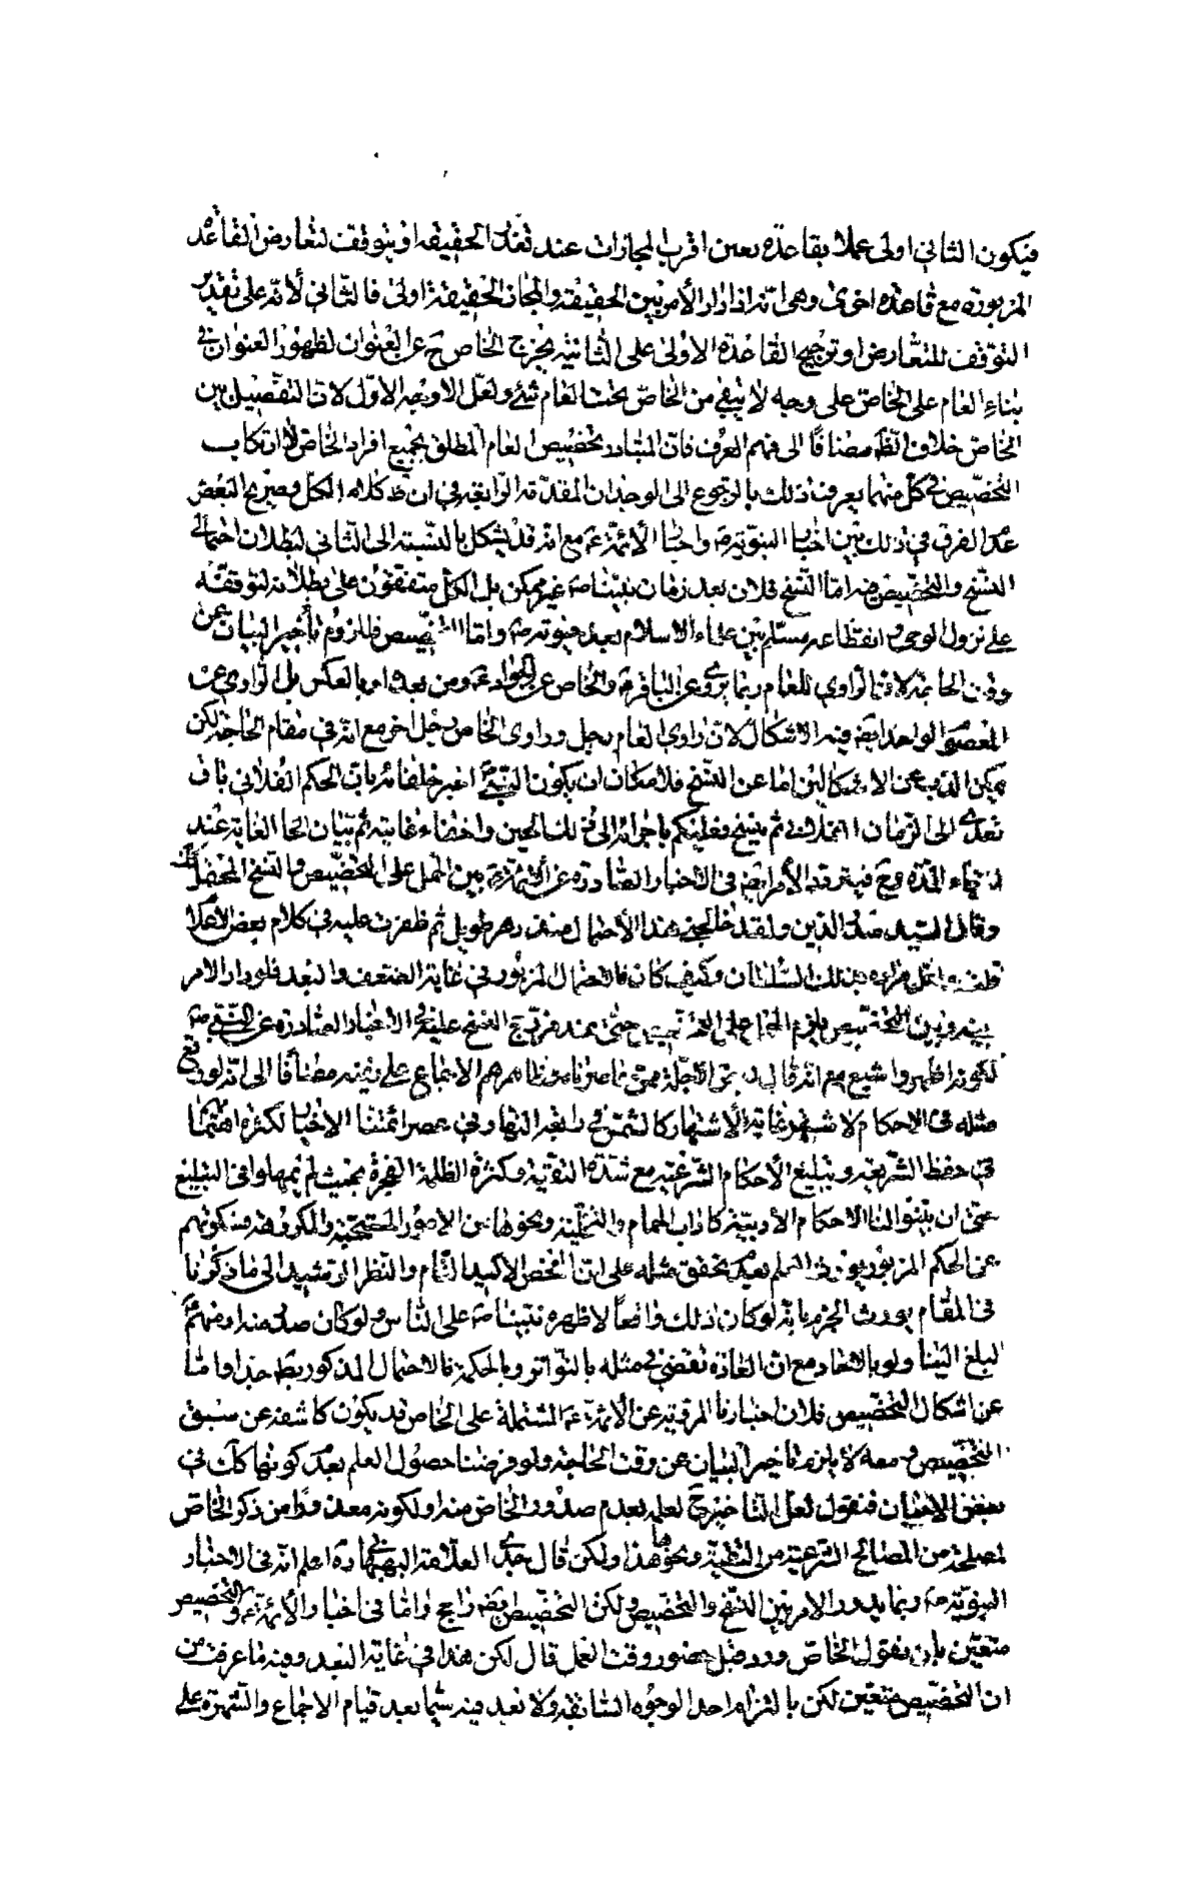 فيكون الثاني اولى عملا بقاعدة تعين اقرب المجازات عند تعذر الحقيقة او يتوقف لتعارض القاعدة
المزبورة مع قاعدة اخرى وهى انه اذا دار الأمر بين الحقيقة والمجاز الحقيقة اولى فالثاني لأنه على تقدير
التوقف للتعارض او ترجيح القاعدة الاولى على الثانية يخرج الخاص ح عن العنوان لظهور العنوان في
بناء العام على الخاص على وجه لا يبقى من الخاص تحت العام شئ ولعل الاوجه الاول لان التفصيل بين
الخاص خلاف الظ مضافا الى فهم العرف فان المتبادر تخصيص العام المطلق بجميع افراد الخاص لا ارتكاب
التخصيص في كل منهما يعرف ذلك بالرجوع الى الوجدان المقدمة الرابعة في ان ظ كلام الكل وصريح البعض
عدم الفرق في ذلك بين اخبار النبوية ص واخبار الأئمة ع مع انه قد يشكل بالنسبة الى الثاني لبطلان احتمالي
النسخ والتخصيص فيه اما النسخ فلان بعد زمان نبينا ص غير ممكن بل الكل متفقون على بطلانه لتوقفه
على نزول الوحى وانقطاعه مسلم بين علماء الاسلام بعد فوته ص واما التخصيص فللزوم تأخير البيان عن
وقت الحاجة لان الراوى للعام ربما يروى عن الباقر ع والخاص عن الجواد ع ومن بعده او بالعكس بل الراوى عن
المعصوم الواحد ايض فيه الاشكال لان راوى العام رجل وراوى الخاص رجل اخر مع انه في مقام الحاجة لكن
يمكن الذب عن الاشكالين اما عن النسخ فلامكان ان يكون النبي ص اخبر خلفائه بان الحكم الفلانى باق
بعدى الى الزمان الفلانى ثم ينسخ فعليكم باجرائه الى ذلك الحين واخفاء غايته ثم بيان الغاية عند
انتهاء المدة وح فيتردد الأمر ايض في الاخبار الصادرة عن الائمة ع بين الحمل على التخصيص والنسخ
وقال السيد صدر الدين ولقد خالجنى هذا الأحتمال منذ دهر طويل ثم ظفرت عليه في كلام بعض الاعلام
قلت مراده سلطان وكيف كان فالاحتمال المزبور في غاية الضعف والبعد فلو دار الامر
بينه وبين التخصيص يلزم الحمل على التخصيص حتى عند مرجح النسخ عليه في الاخبار الصادرة عن النبى ص
لكونه اظهر واشيع مع انه قال الاجلة ممن عاصرناه ظاهرهم الاجماع على نفيه مضافا الى انه لو وقع
مثله في الاحكام لاشتهر غاية الاشتهار كالشمس في رابعة النهار وفي عصر ائمتنا الاخيار لكثرة اهتمامهم
في حفظ الشريعة وتبليغ الأحكام الشرعية مع شدة التقية وكثرة الظلمة الفجرة بحيث لم يمهلوا في التبليغ
حتى ان بينوا لنا الاحكام الأدبية كاداب الحمام والتخلية ونحوها من الامور المستحبة والمكروهة فسكوتهم
عن الحكم المزبور يورث العلم بعدم تحقق مثله على ان الفحص الاكيد التام والنظر الرشيد الى ما ذكرنا
في المقام يورث الجزم بانه لو كان ذلك واقعا لاظهره نبينا ص على الناس ولو كان صدر منه او منهم ع
لبلغ الينا ولو بالاحاد مع ان العادة تقضى في مثله بالتواتر وبالحكمة فالاحتمال المذكور بط جدا واما
عن اشكال التخصيص فلان اخبارنا المروية عن الأئمة ع المشتملة على الخاص قد يكون كاشفة عن سبق
التخصيص ومعه لا يلزم تأخير البيان عن وقت الحاجة ولو فرضنا حصول العلم بعدم كونها كك في
بعض الاحيان فنقول لعل التأخير ح لعلمه بعدم صدور الخاص منه او لكونه معذورا من ذكر الخاص
لمصلحة من المصالح الشرعية من التقية ونحوها هذا ولكن قال جدى العلامة البهبهانى ره اعلم انه في الاخبار
النبوية ص ربما يدور الامر بين النسخ والتخصيص ولكن التخصيص ايض راجح واما في اخبار الأئمة ع فالتخصيص
متعين بان نقول الخاص ورد قبل حضور وقت العمل قال لكن هذا في غاية البعد وفيه ما عرفت من
ان التخصيص متعين لكن بالتزام احد الوجوه السابقة ولا بعد فيه سيما بعد قيام الاجماع والشهرة على